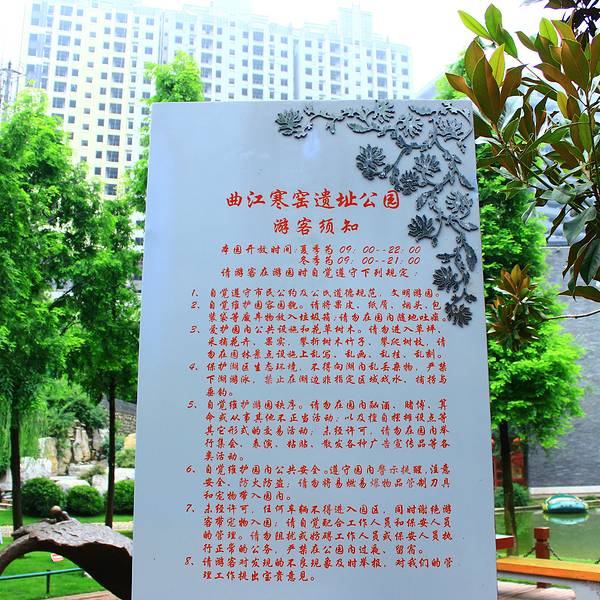 曲江寒窑遗址公园
游客须知
本园开放时间:夏季为09:00--22:00
冬季为09:00--21:00
请游客在游园时自觉遵守下列规定:
1、自觉遵守市民公约及公民道德规范,文明游园。
2、自觉维护园容园貌。请将果皮、纸屑、烟头、包
装袋等废弃物放入垃圾箱;请勿在园内随地吐痰。
3、爱护园内公共设施和花草树木。请勿进入草坪、
采摘花卉、果实,攀折树木竹子、攀爬树枝,请
勿在园林景点设施上乱写、乱画、乱挂、乱刻。
4、保护湖区生态环境,不得向湖内乱丢弃物,严禁
下湖游泳,禁止在湖边非指定区域戏水、捕捞与
垂钓。
5、自觉维护游园秩序。请勿在园内酗酒、赌博、算
命或从事其他不正当活动,以及擅自摆摊设点等
其它形式的交易活动;未经许可,请勿在园内举
行集会、表演、粘贴、散发各种广告宣传品等各
类活动。
6、自觉维护园内公共安全。遵守园内警示提醒,注意
安全、防火防盗;请勿将易燃易爆物品管制刀具
和宠物带入园内。
7、未经许可,任何车辆不得进入园区,同时谢绝游
客带宠物入园;请自觉配合工作人员和保安人员
的管理。请勿阻扰或妨碍工作人员或保安人员执
行正常的公务,严禁在公园内过夜、留宿。
8、请游客对发现的不良现象及时举报,对我们的管
理工作提出宝贵意见。